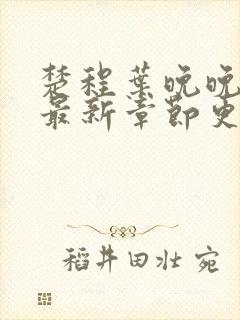 楚程葉晚晚
最新章節更
稻井田壯 宛